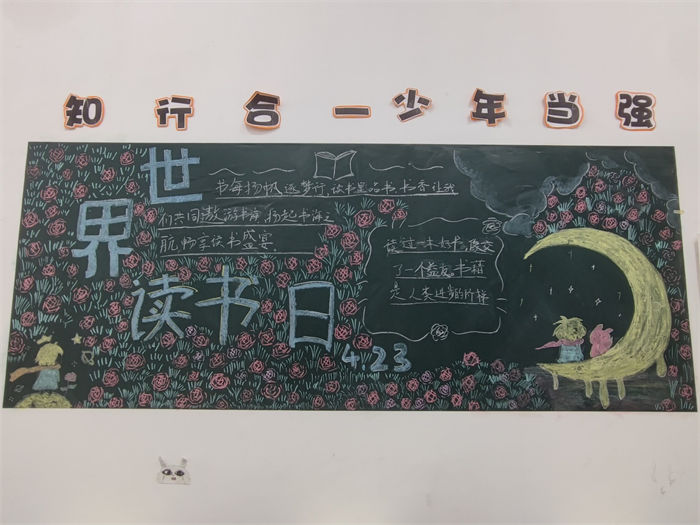 知行合一少年当强
世界
读书日
4.23
书海扬帆逐梦行,读书里品书,书香让我
们共同遨游书海,扬起书海之
航,畅享读书盛宴
读过一本好书,像交
了一个益友,书籍
是人类进步的阶梯